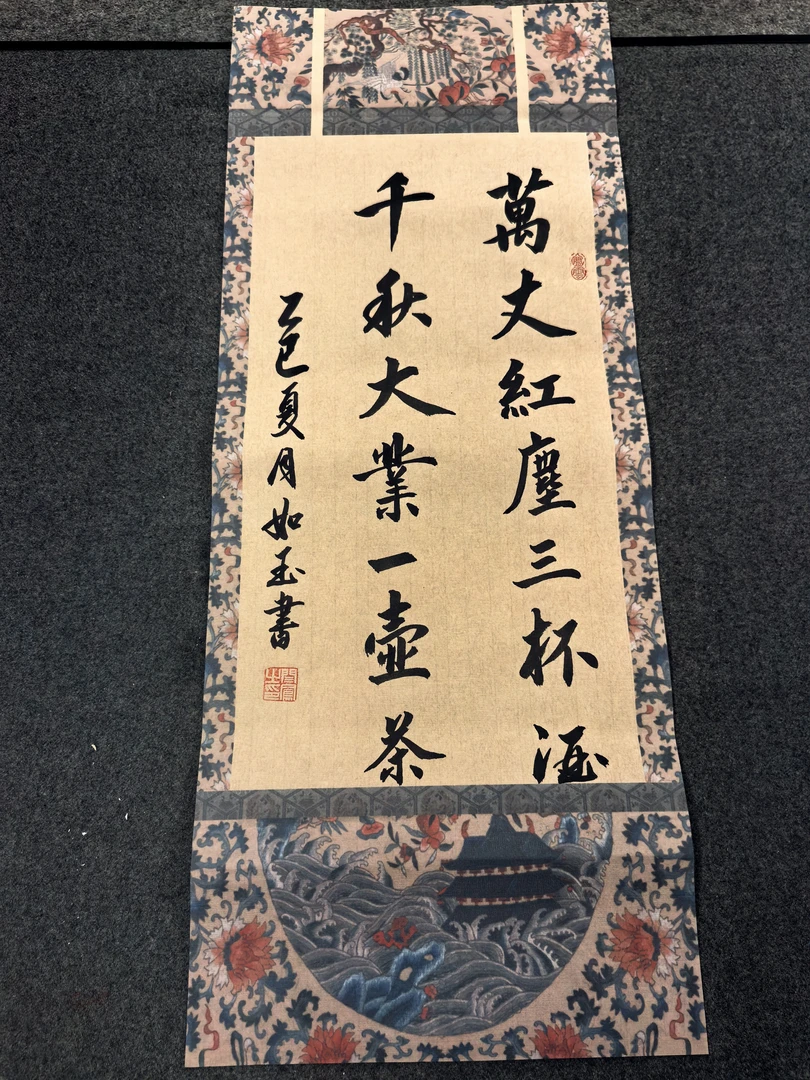 萬丈紅塵三杯酒
千秋大業一壺茶
乙巳夏月如玉書